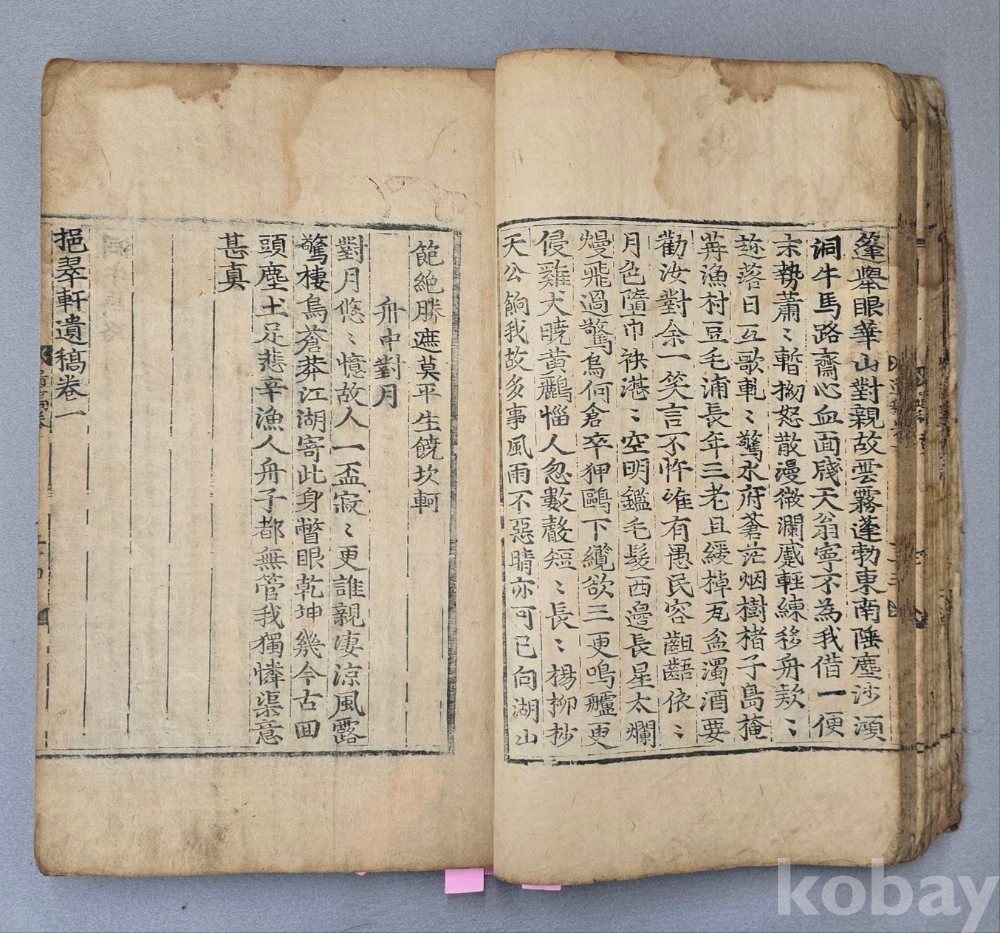 篷擧眼華山對親故雲霧蓬勃東南陲塵沙澒
洞牛馬路齋心血面牋天翁寧不為我借一便
末勢蕭〻暫拗怒散漫微瀾蹙輕練移舟欵〻
趂落日互歌軋〻驚水府蒼茫烟樹楮子島掩
苒漁村豆毛浦長年三老且緩棹瓦盆濁酒要
勸汝對余一笑言不怍唯有愚民容齟齬依〻
月色墮巾袂湛〻空明鑑毛髮西邊長星太爛
熳飛過驚鳥何倉卒狎鷗下纜欲三更鳴艫更
侵雞犬曉黃鸝惱人忽數聲短〻長〻楊柳抄
天公餉我故多事風雨不惡晴亦可已向湖山
飽絶勝遮莫平生饒坎軻
舟中對月
對月悠〻憶故人一盃寂〻更誰親凄涼風露
驚棲鳥蒼莽江湖寄此身瞥眼乾坤幾今古回
頭塵土足悲辛漁人舟子都無管我獨憐渠意
甚真
挹翠軒遺稿卷一
kobay